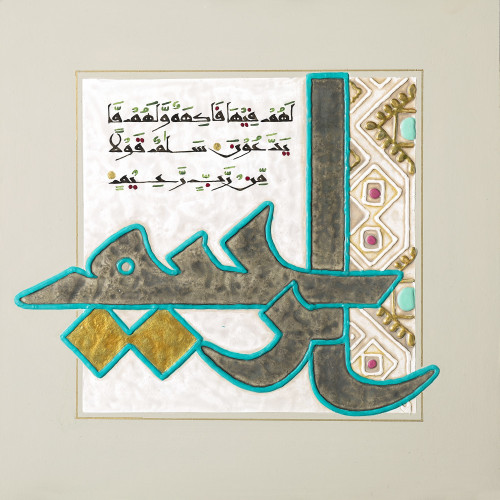 لَهُمْ فِيْهَا فَاكِهَةٌ وَّلَهُمْ مَّا
يَدَّعُوْنَ سَلٰمٌ قَوْلًا
مِّنْ رَّبٍّ رَّحِيْمٍ